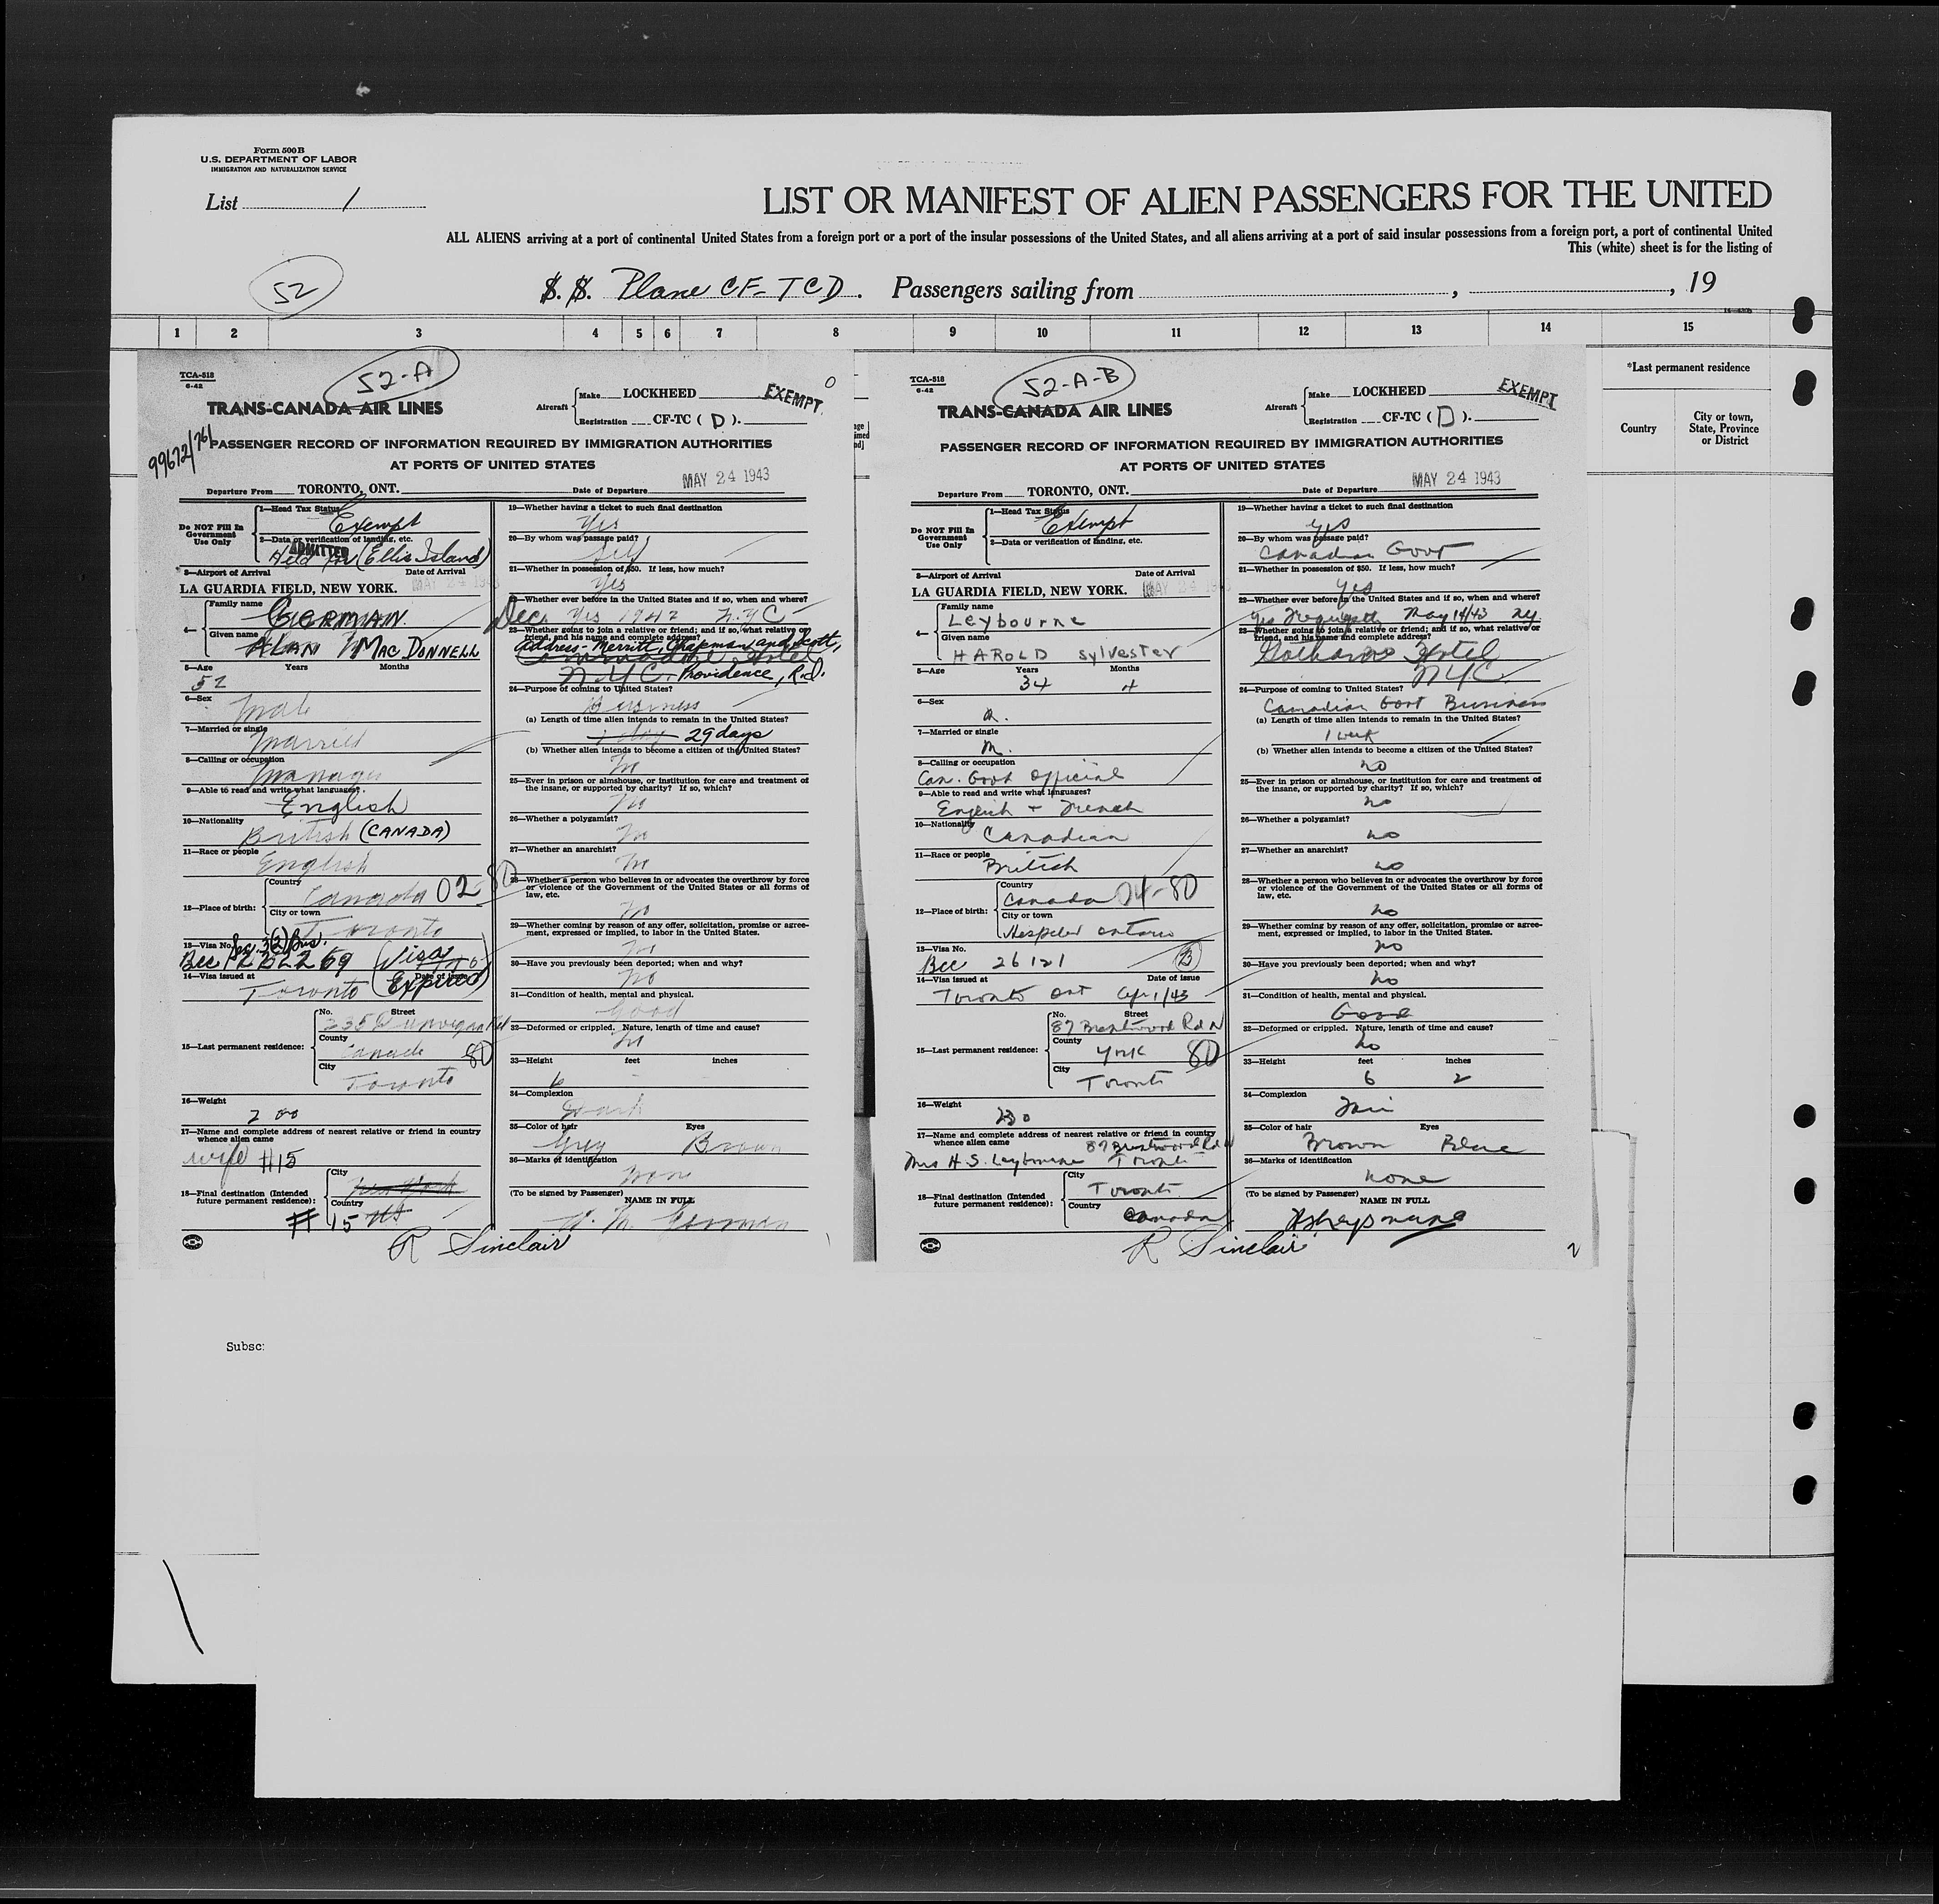 Form 500B
U.S. DEPARTMENT OF LABOR
IMMIGRATION AND NATURALIZATION SERVICE
List 1
LIST OR MANIFEST OF ALIEN PASSENGERS FOR THE UNITED
ALL ALIENS arriving at a port of continental United States from a foreign port or a port of the insular possessions of the United States, and all aliens arriving at a port of said insular possessions from a foreign port, a port of continental United
This (white) sheet is for the listing of
52
S. S. Plane CF-TCD. Passengers sailing from , , 19
1 2 3 4 5 6 7 8 9 10 11 12 13 14 15
*Last permanent residence
Country
City or town, State, Province or District
TCA-518
6-42
52-A
TRANS-CANADA AIR LINES
Aircraft
Make LOCKHEED
Registration CF-TC ( D ).
EXEMPT
99672/761
PASSENGER RECORD OF INFORMATION REQUIRED BY IMMIGRATION AUTHORITIES
AT PORTS OF UNITED STATES
Departure From TORONTO, ONT. Date of Departure MAY 24 1943
Do NOT Fill In Government Use Only
1—Head Tax Status
Exempt
2—Data or verification of landing, etc.
ADMITTED
Held for (Ellis Island)
3—Airport of Arrival Date of Arrival
LA GUARDIA FIELD, NEW YORK. MAY 24 1943
4— Family name
GERMAN
Given name
ALAN MACDONNELL
5—Age Years Months
52
6—Sex
Male
7—Married or single
Married
8—Calling or occupation
Manager
9—Able to read and write what languages?
English
10—Nationality
British (CANADA)
11—Race or people
English
12—Place of birth: Country
Canada 02 80
City or town
Toronto
13—Visa No. Sec. 3(2) Bus.
(Visa
14—Visa issued at Date of issue
Toronto Expired)
15—Last permanent residence: No. Street
County
Canada 80
City
Toronto
16—Weight
200
17—Name and complete address of nearest relative or friend in country whence alien came
wife #15
18—Final destination (Intended future permanent residence): City
New York
Country
# 15 US
19—Whether having a ticket to such final destination
Yes
20—By whom was passage paid?
Self
21—Whether in possession of $50. If less, how much?
Yes
22—Whether ever before in the United States and if so, when and where?
Dec. Yes 1942 N.Y.C
23—Whether going to join a relative or friend; and if so, what relative or friend, and his name and complete address?
Address- Merritt, Chapman, and Scott,
Commodore Hotel
N.Y.C. Providence, R.I.
24—Purpose of coming to United States?
Business
(a) Length of time alien intends to remain in the United States?
1 day 29 days
(b) Whether alien intends to become a citizen of the United States?
No
25—Ever in prison or almshouse, or institution for care and treatment of the insane, or supported by charity? If so, which?
No
26—Whether a polygamist?
No
27—Whether an anarchist?
No
28—Whether a person who believes in or advocates the overthrow by force or violence of the Government of the United States or all forms of law, etc.
No
29—Whether coming by reason of any offer, solicitation, promise or agreement, expressed or implied, to labor in the United States.
No
30—Have you previously been deported; when and why?
No
31—Condition of health, mental and physical.
Good
32—Deformed or crippled. Nature, length of time and cause?
No
33—Height feet inches
6 -
34—Complexion
Dark
35—Color of hair Eyes
Grey Brown
36—Marks of identification
None
(To be signed by Passenger) NAME IN FULL
A. M. German
R Sinclair
TCA-518
6-42
52-A-B
TRANS-CANADA AIR LINES
Aircraft
Make LOCKHEED
Registration CF-TC ( D ).
EXEMPT
PASSENGER RECORD OF INFORMATION REQUIRED BY IMMIGRATION AUTHORITIES
AT PORTS OF UNITED STATES
Departure From TORONTO, ONT. Date of Departure MAY 24 1943
Do NOT Fill In Government Use Only
1—Head Tax Status
Exempt
2—Data or verification of landing, etc.
3—Airport of Arrival Date of Arrival
LA GUARDIA FIELD, NEW YORK. MAY 24 1943
4— Family name
Leybourne
Given name
HAROLD Sylvester
5—Age Years Months
34 4
6—Sex
M.
7—Married or single
M.
8—Calling or occupation
Can. Govt Official
9—Able to read and write what languages?
English + French
10—Nationality
Canadian
11—Race or people
British
12—Place of birth: Country
Canada 04-80
City or town
Hespeler Ontario
13—Visa No.
Bcc 26121 (3)
14—Visa issued at Date of issue
Toronto Ont Apr 1/43
15—Last permanent residence: No. Street
87 Brentwood Rd N
County
York 80
City
Toronto
16—Weight
230
17—Name and complete address of nearest relative or friend in country whence alien came
87 Brentwood Rd N
Mrs H. S. Leybourne Toronto
18—Final destination (Intended future permanent residence): City
Toronto
Country
Canada
19—Whether having a ticket to such final destination
yes
20—By whom was passage paid?
Canadian Govt
21—Whether in possession of $50. If less, how much?
yes
22—Whether ever before in the United States and if so, when and where?
Yes Frequently May 14/43 NY
23—Whether going to join a relative or friend; and if so, what relative or friend, and his name and complete address?
Hotel
NYC.
24—Purpose of coming to United States?
Canadian Govt Business
(a) Length of time alien intends to remain in the United States?
1 week
(b) Whether alien intends to become a citizen of the United States?
no
25—Ever in prison or almshouse, or institution for care and treatment of the insane, or supported by charity? If so, which?
no
26—Whether a polygamist?
no
27—Whether an anarchist?
no
28—Whether a person who believes in or advocates the overthrow by force or violence of the Government of the United States or all forms of law, etc.
no
29—Whether coming by reason of any offer, solicitation, promise or agreement, expressed or implied, to labor in the United States.
no
30—Have you previously been deported; when and why?
no
31—Condition of health, mental and physical.
Good
32—Deformed or crippled. Nature, length of time and cause?
no
33—Height feet inches
6 2
34—Complexion
Fair
35—Color of hair Eyes
Brown Blue
36—Marks of identification
none
(To be signed by Passenger) NAME IN FULL
HSLeybourne
R Sinclair
2
Subsc: